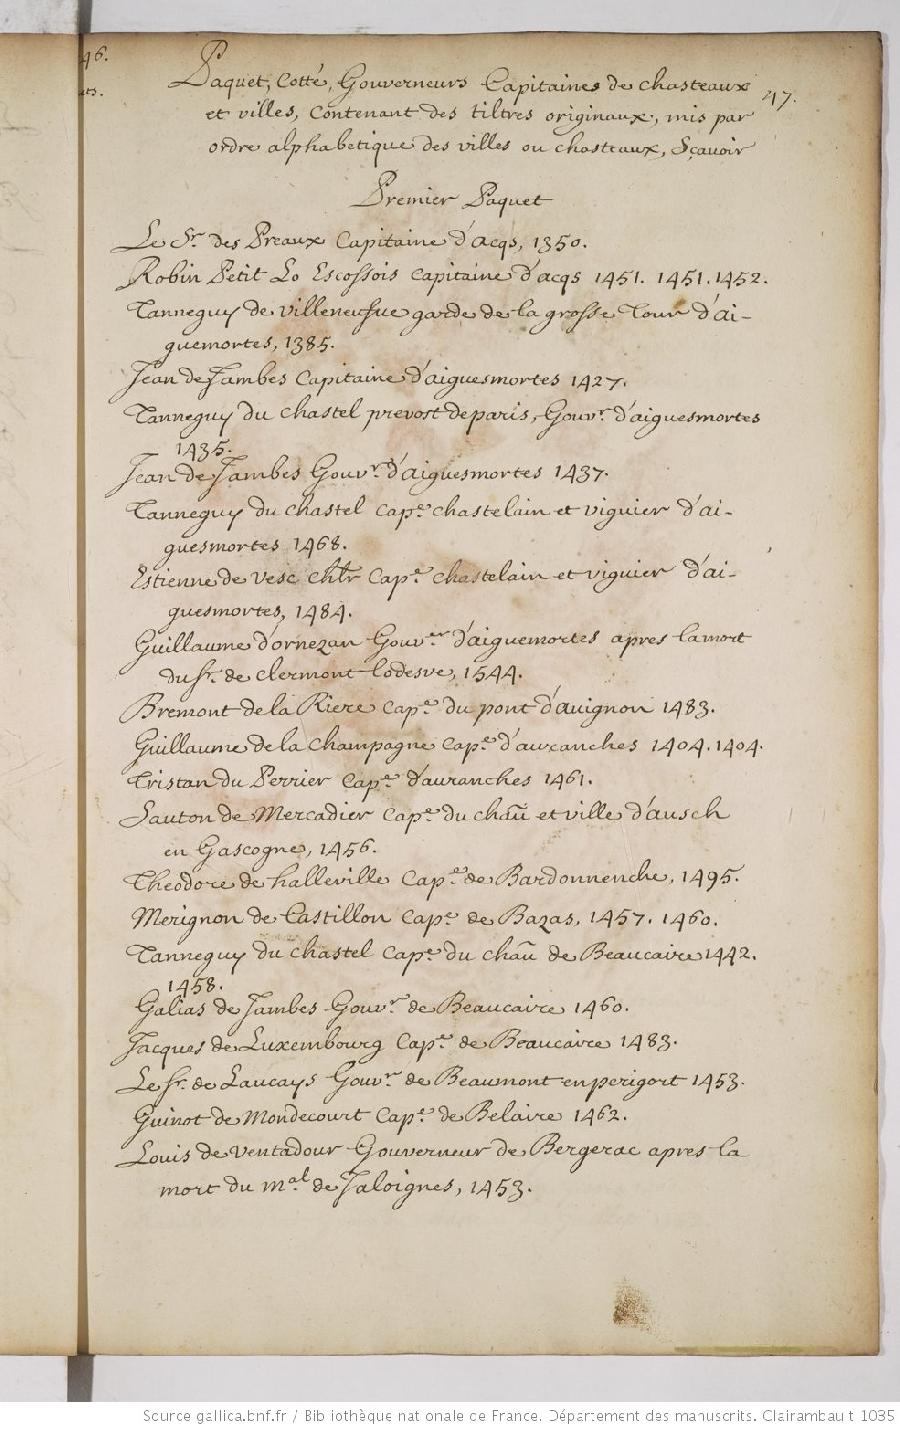 46.
ts.
47.
Paquet, Cotté, Gouverneurs Capitaines de chasteaux
et villes, contenant des tiltres originaux, mis par
ordre alphabetique des villes ou chasteaux, Sçavoir
Premier Paquet
Le Sr. des Preaux Capitaine d'acqs, 1350.
Robin Petit Lo Escossois capitaine d'acqs 1451. 1451. 1452.
Tanneguy de villeneufue garde de la grosse Tour d'ai-
guemortes, 1385.
Jean de Jambes Capitaine d'aiguesmortes 1427.
Tanneguy du chastel prevost de paris, Gouvr. d'aiguesmortes
1435.
Jean de Jambes Gouvr. d'aiguesmortes 1437.
Tanneguy du chastel cape. chastelain et viguier d'ai-
guesmortes 1468.
Estienne de vesc chlr cape. chastelain et viguier d'ai-
guesmortes, 1484.
Guillaume d'ornezan Gouver. d'aiguemortes apres la mort
du sr. de clermont lodesve, 1544.
Bremont de la Riere cape. du pont d'avignon 1483.
Guillaume de la champagne cape. d'avranches 1404. 1404.
Tristan du Perrier cape. d'avranches 1461.
Sauton de Mercadier cape. du chau et ville d'ausch
en Gascogne, 1456.
Theodore de halleville cape. de Bardonnenche, 1495.
Merignon de Castillon cape. de Bazas, 1457. 1460.
Tanneguy du chastel cape. du chau de Beaucaire 1442.
1458.
Galias de Jambes Gouvr. de Beaucaire 1460.
Jacques de Luxembourg cape. de Beaucaire 1483.
Le sr. de Laucays Gouvr. de Beaumont en perigort 1453.
Guinot de Mondecourt cape. de Belaire 1462.
Louis de Ventadour Gouverneur de Bergerac apres la
mort du mal. de Jaloignes, 1453.
Source gallica.bnf.fr / Bibliothèque nationale de France. Département des manuscrits. Clairambault 1035